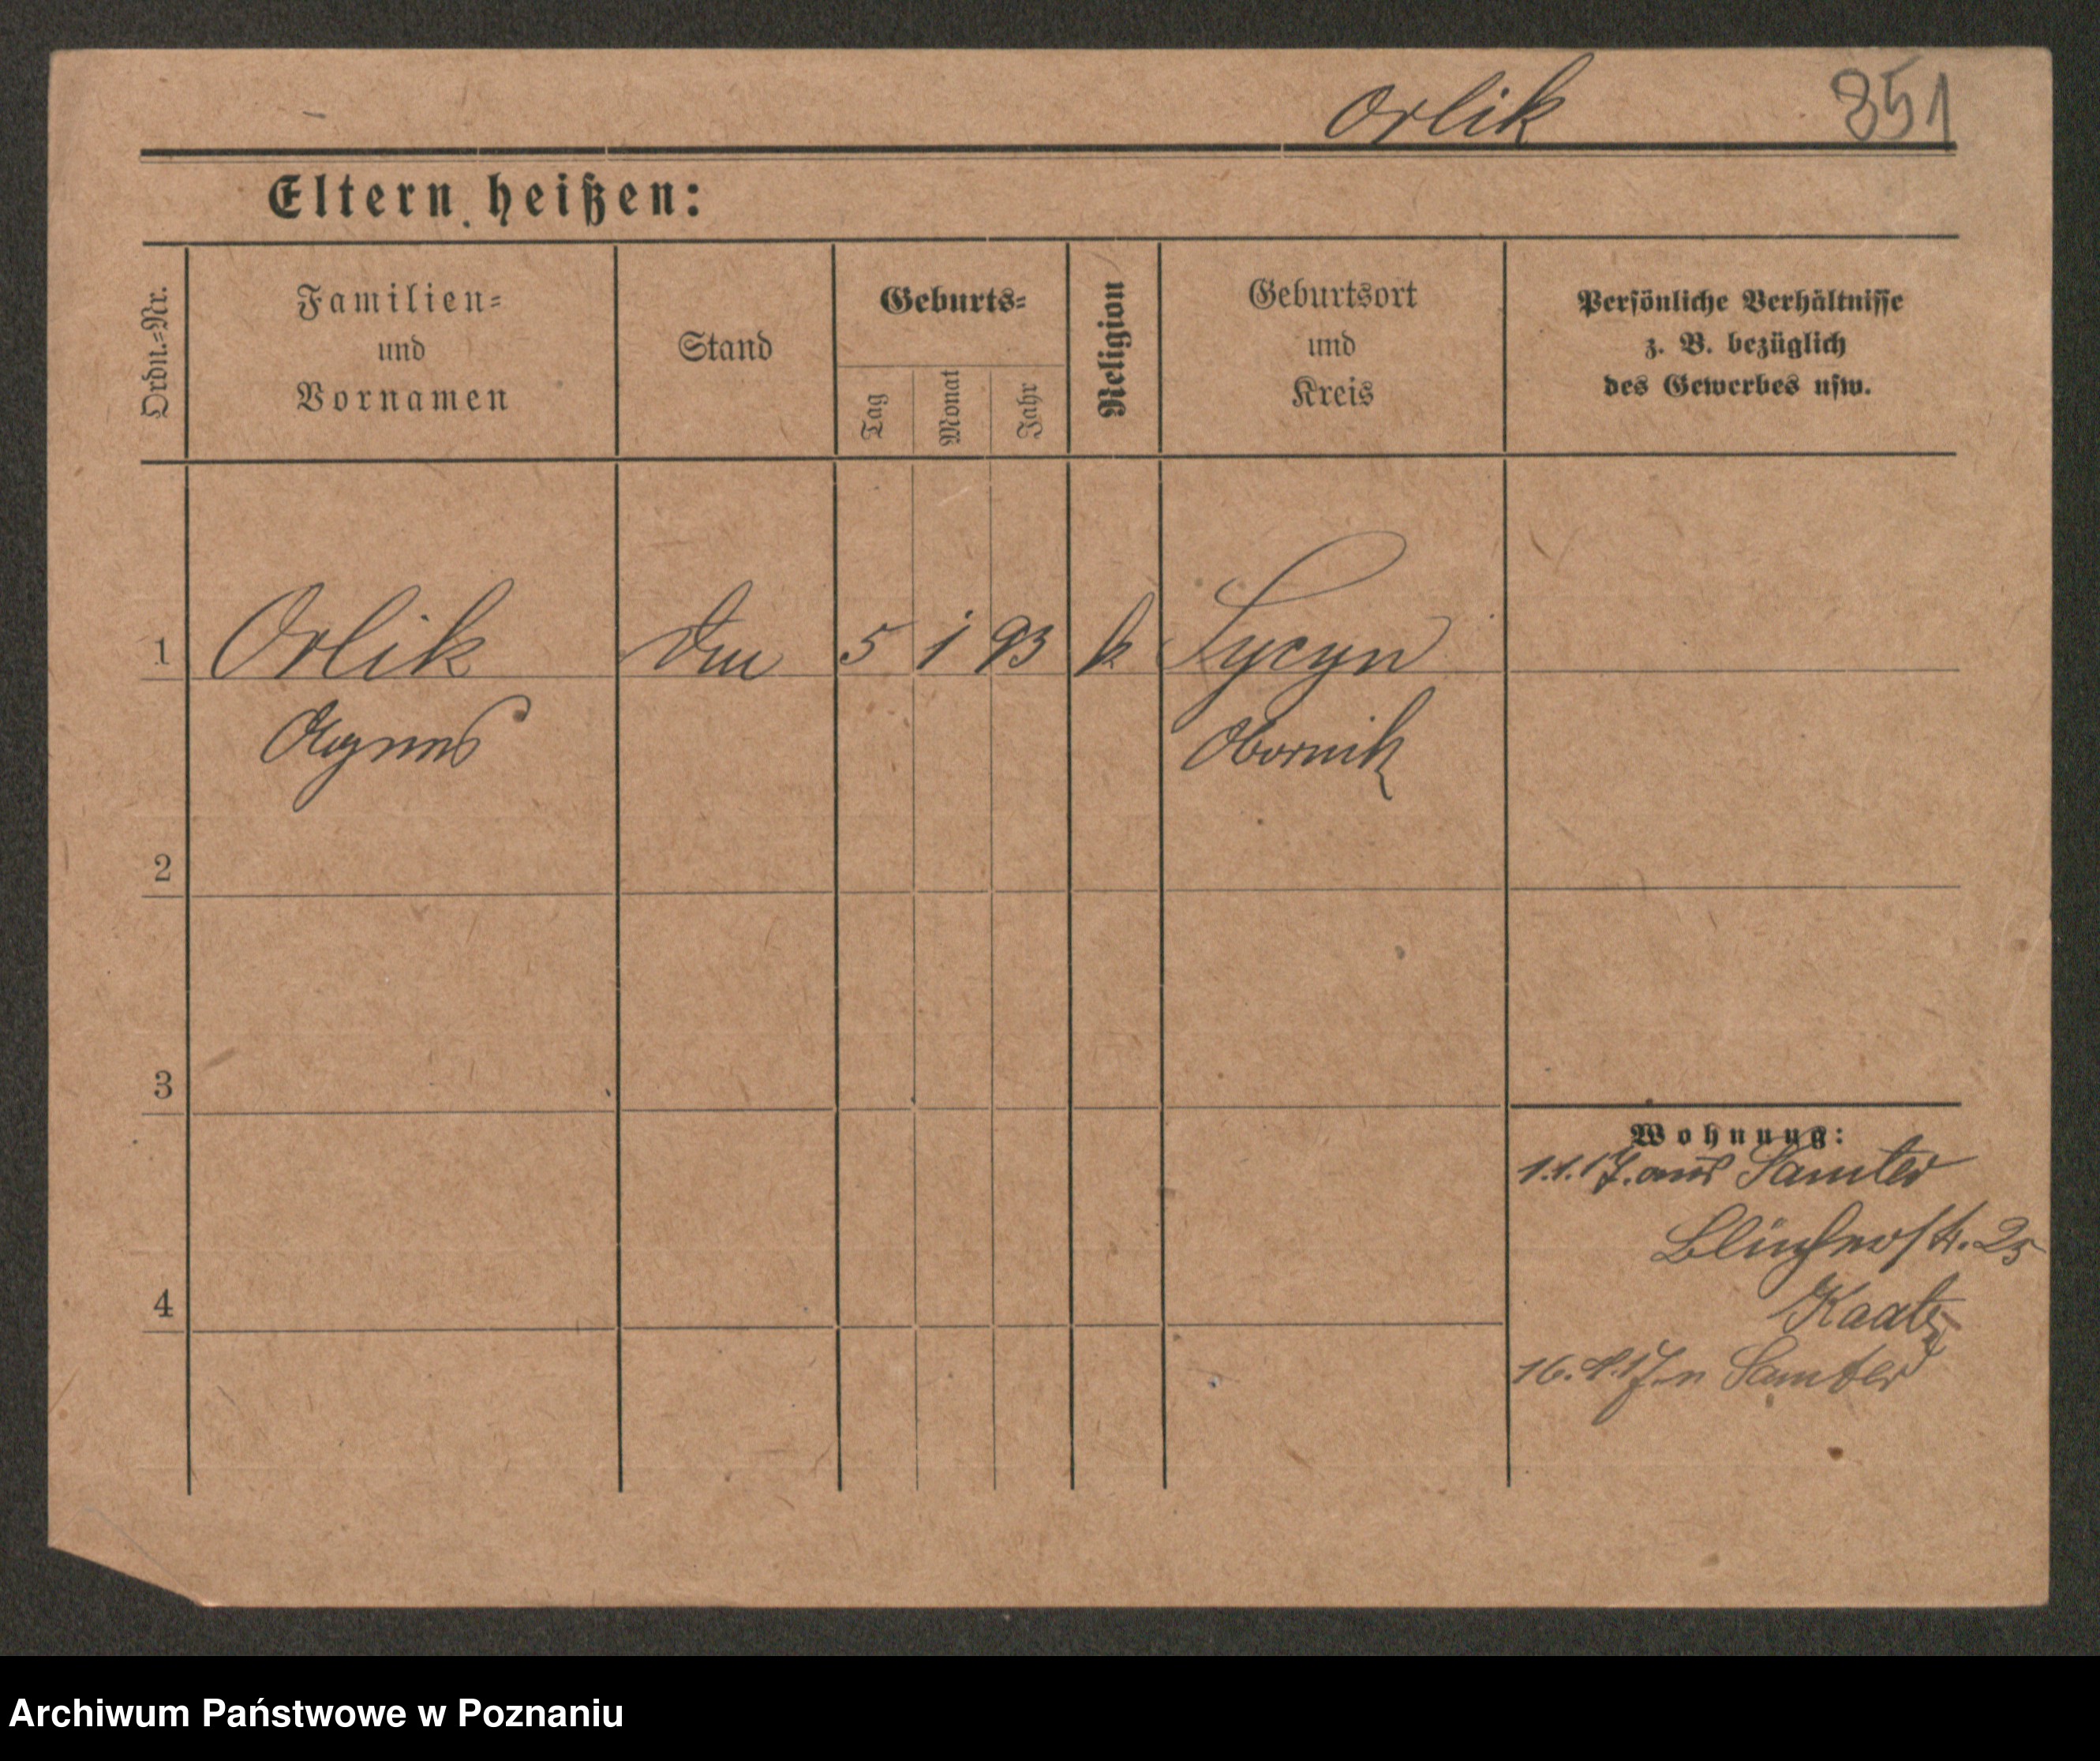 Orlik 851
Eltern heißen:
Ordn.=Nr.
Familien=
und
Vornamen
Stand
Geburts=
Tag
Monat
Jahr
Religion
Geburtsort
und
Kreis
Persönliche Verhältnisse
z. B. bezüglich
des Gewerbes usw.
1 Orlik 5 1 93 k Lycyn
Agnes Obornik
2
3
4
Wohnung:
1.1.17. aus Samter
Blücherstr. 25
Kaatz
16. 17. n Samter
Archiwum Państwowe w Poznaniu